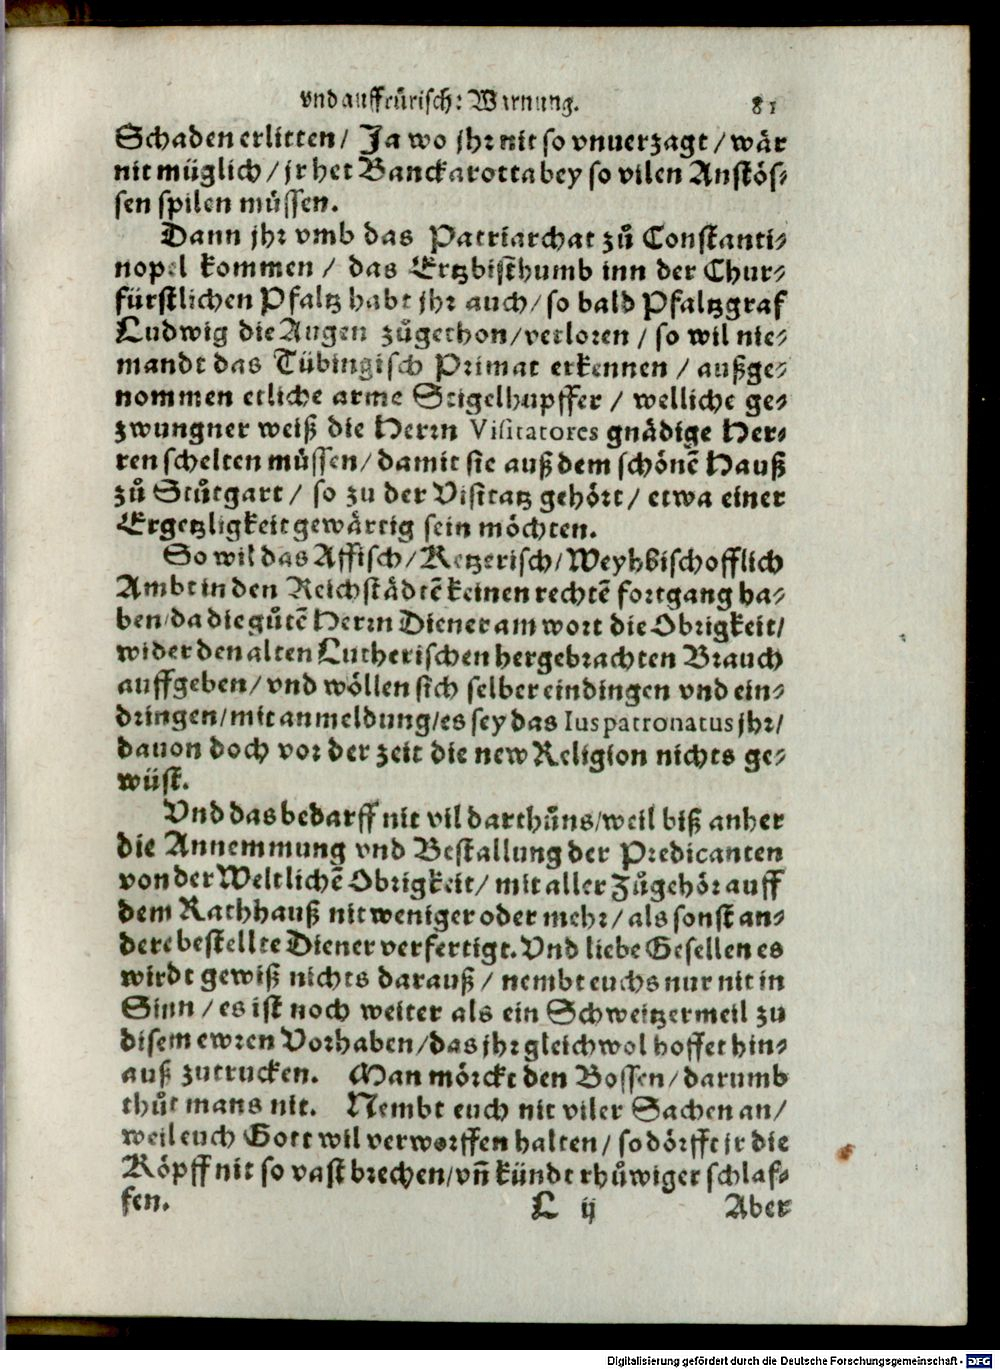 vnd auffrürisch: Warnung. 81
Schaden erlitten/ Ja wo jhr nit so vnuerzagt/ wär
nit müglich/ jr het Banckarotta bey so vilen Anstös⸗
sen spilen müssen.
Dann jhr vmb das Patriarchat zů Constanti⸗
nopel kommen/ das Ertzbisthumb inn der Chur⸗
fürstlichen Pfaltz habt jhr auch/ so bald Pfaltzgraf
Ludwig die Augen zůgethon/ verloren/ so wil nie⸗
mandt das Tübingisch Primat erkennen/ außge⸗
nommen etliche arme Stigelhupffer/ welliche ge⸗
zwungner weiß die Herrn Visitatores gnädige Her⸗
ren schelten müssen/ damit sie auß dem schönẽ Hauß
zů Stůtgart/ so zu der Visitatz gehört/ etwa einer
Ergetzligkeit gewärtig sein möchten.
So wil das Affisch/ Ketzerisch/ Weyhbischofflich
Ambt in den Reichstädtẽ keinen rechtẽ fortgang ha⸗
ben/ da die gůtẽ Herrn Diener am wort die Obrigkeit/
wider den alten Lutherischen hergebrachten Brauch
auffgeben/ vnd wöllen sich selber eindingen vnd ein⸗
dringen/ mit anmeldung/ es sey das Ius patronatus jhr/
dauon doch vor der zeit die new Religion nichts ge⸗
wüst.
Vnd das bedarff nit vil darthůns/ weil biß anher
die Annemmung vnd Bestallung der Predicanten
von der Weltlichẽ Obrigkeit/ mit aller Zůgehör auff
dem Rathhauß nit weniger oder mehr/ als sonst an⸗
dere bestellte Diener verfertigt. Vnd liebe Gesellen es
wirdt gewiß nichts darauß/ nembt euchs nur nit in
Sinn/ es ist noch weiter als ein Schweitzermeil zu
disem ewren Vorhaben/ das jhr gleichwol hoffet hin⸗
auß zutrucken. Man mörckt den Bossen/ darumb
thůt mans nit. Nembt euch nit viler Sachen an/
weil euch Gott wil verworffen halten/ so dörfft jr die
Köpff nit so vast brechen/ vñ kündt rhůwiger schlaf⸗
fen. L ij Aber
Digitalisierung gefördert durch die Deutsche Forschungsgemeinschaft - DFG